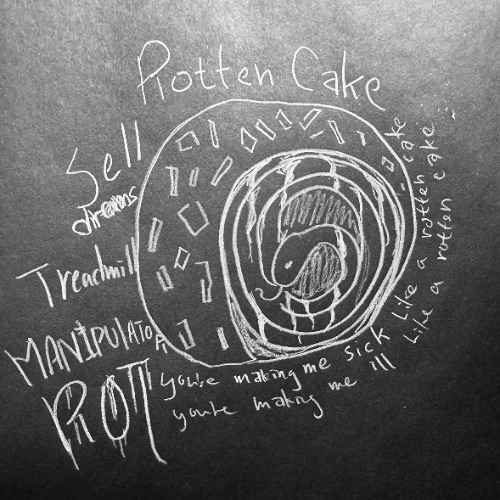 Rotten Cake
Sell
dreams
Treadmill
MANIPULATOR
ROT
you're making me sick like a rotten cake
you're making me ill like a rotten cake